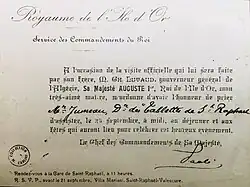 Royaume de l'Ile d'Or
Service des Commandements du Roi
A l'occasion de la visite officielle qui lui sera faite
par son frère, M. Ch. LUTAUD, gouverneur général de
l'Algérie, Sa Majesté AUGUSTE Ier, Roi de l'Ile d'Or, mon
très-aimé maître, m'ordonne d'avoir l'honneur de prier
Mr Juneau, Dr de Taillotte de St Raphaël
d'assister, le 25 septembre, à midi, au déjeuner et aux
fêtes qui auront lieu pour célébrer cet heureux événement.
Le Chef des Commandements de Sa Majesté,
Rendez-vous à la Gare de Saint-Raphaël, à 11 heures.
R. S. V. P. avant le 21 septembre, Villa Marisel, Saint-Raphaël-Valescure.